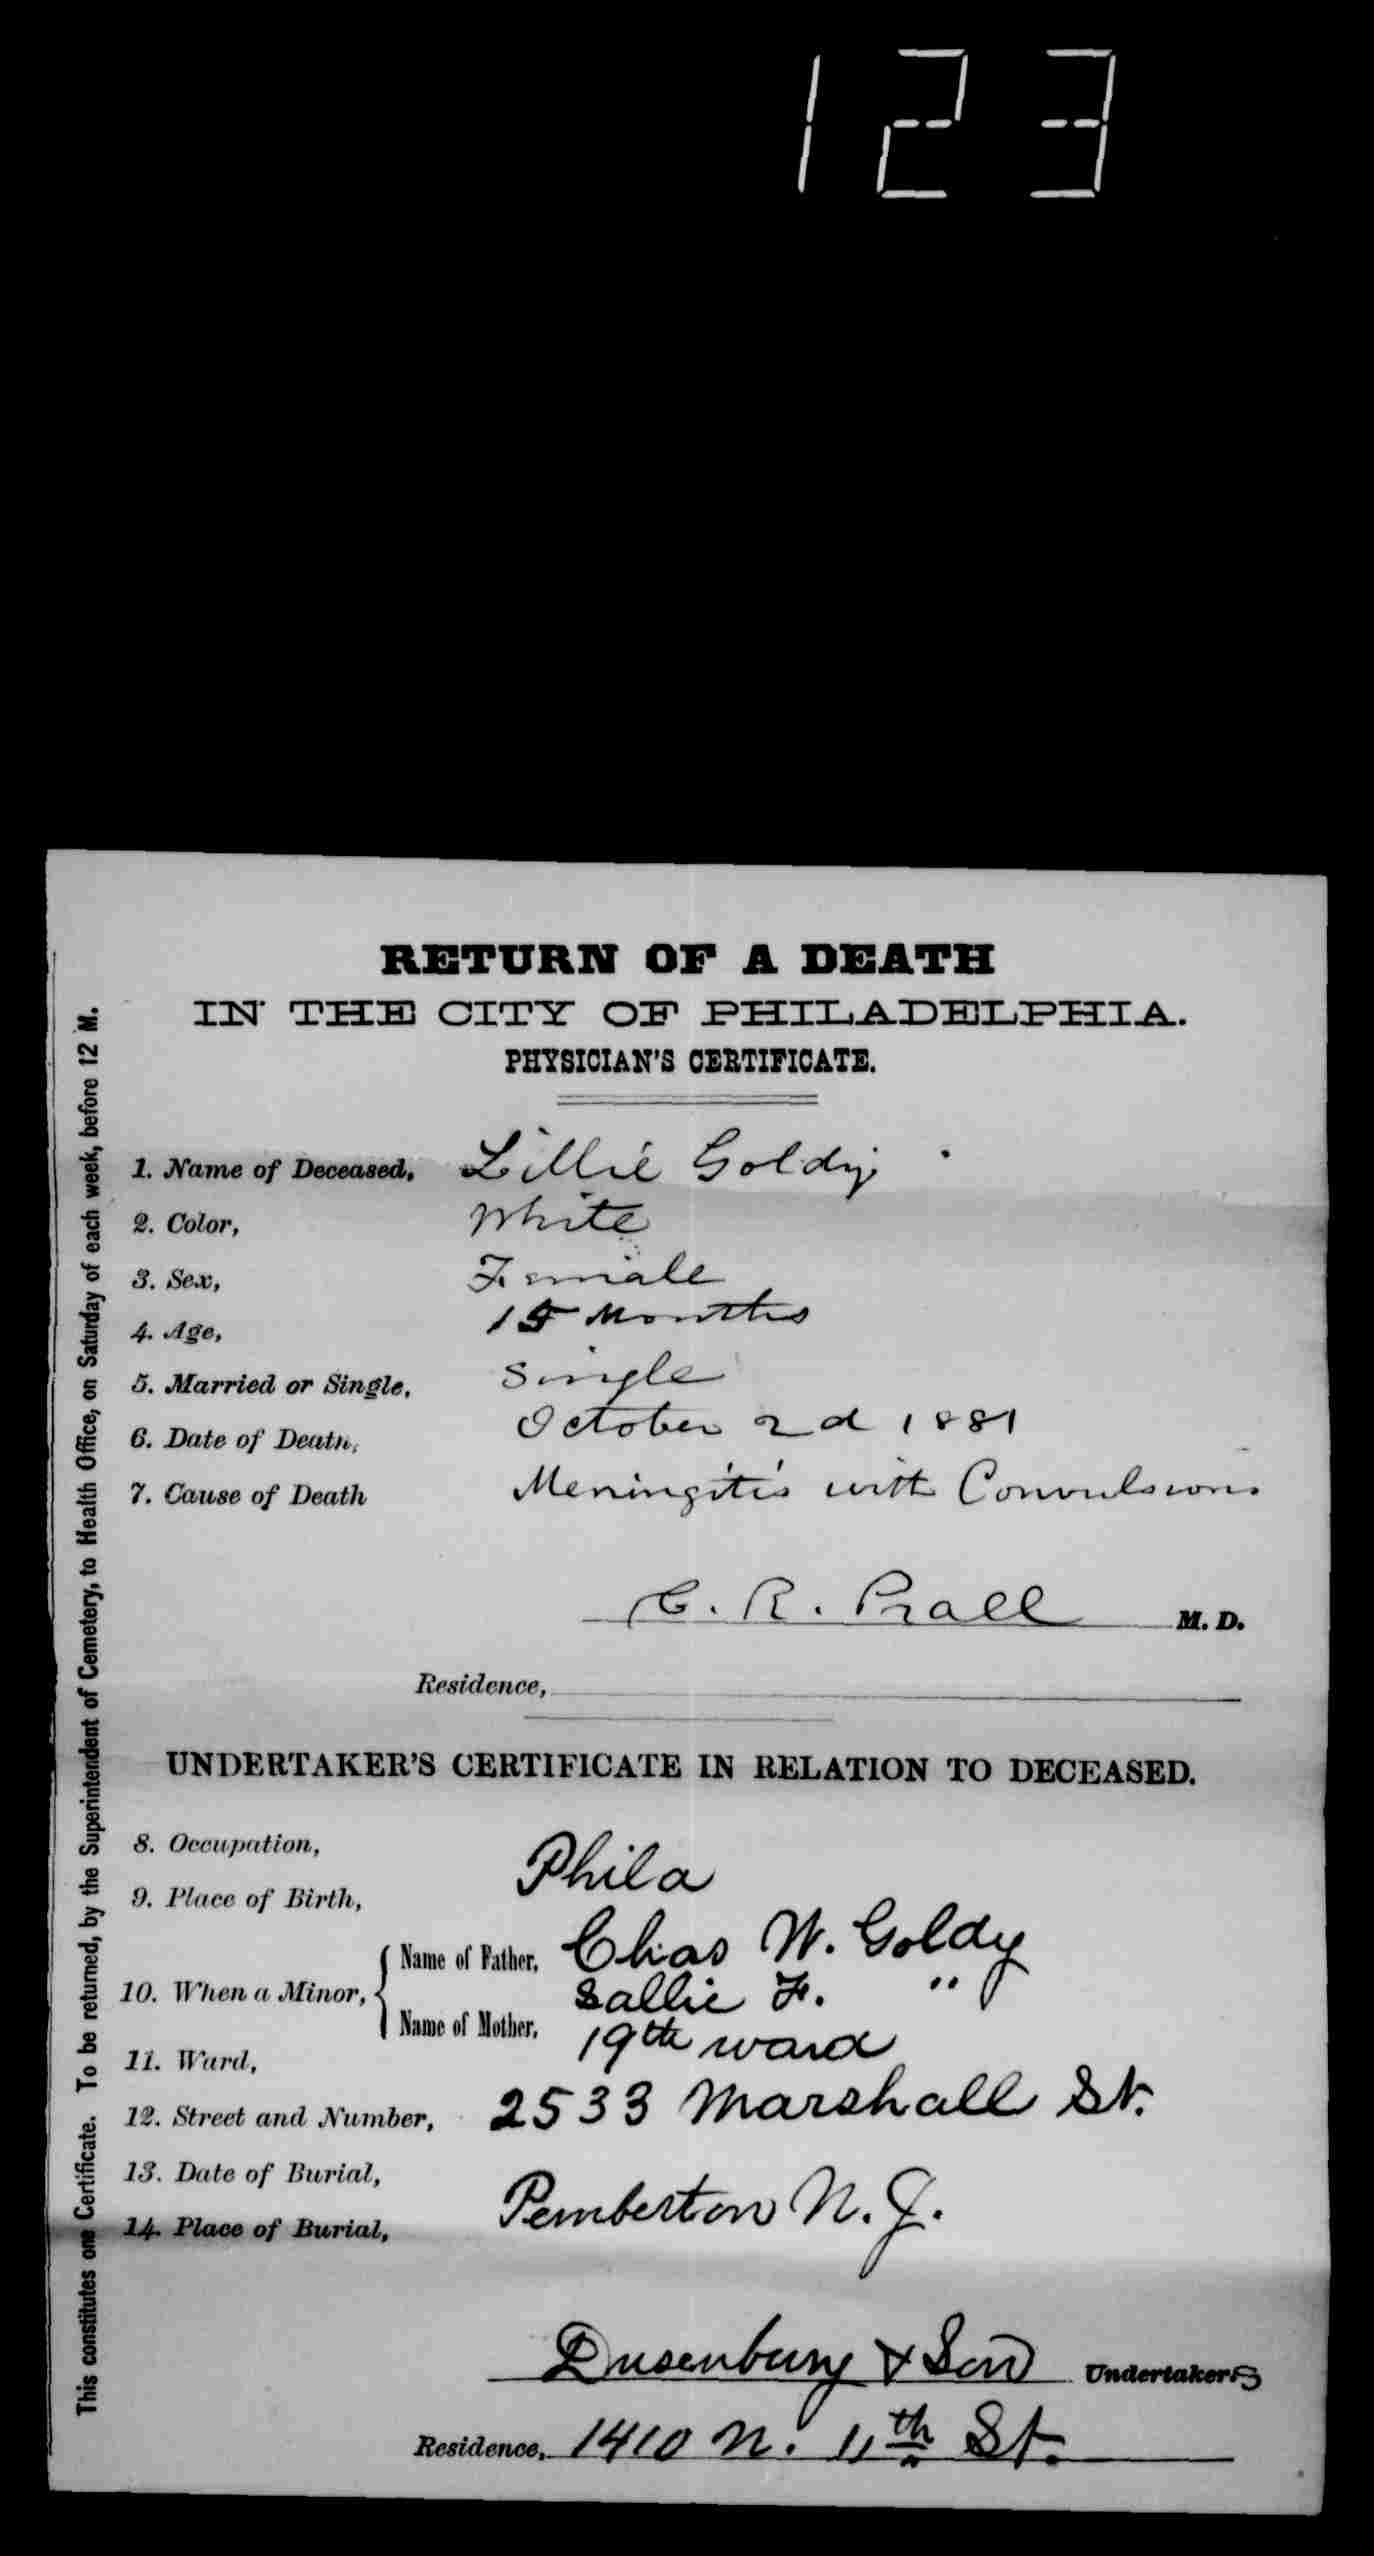 123
RETURN OF A DEATH
IN THE CITY OF PHILADELPHIA.
PHYSICIAN'S CERTIFICATE.
1. Name of Deceased, Lillie Goldy
2. Color, White
3. Sex, Female
4. Age, 15 Months
5. Married or Single, Single
6. Date of Death, October 2d 1881
7. Cause of Death Meningitis with Convulsions
C. R. Prall M. D.
Residence,
UNDERTAKER'S CERTIFICATE IN RELATION TO DECEASED.
8. Occupation,
9. Place of Birth, Phila
10. When a Minor, { Name of Father, Chas W. Goldy
Name of Mother, Sallie F. "
11. Ward, 19th ward
12. Street and Number, 2533 Marshall St.
13. Date of Burial,
14. Place of Burial, Pemberton N. J.
Dusenbury & Son Undertakers
Residence, 1410 N. 11th St.
This constitutes one Certificate. To be returned, by the Superintendent of Cemetery, to Health Office, on Saturday of each week, before 12 M.